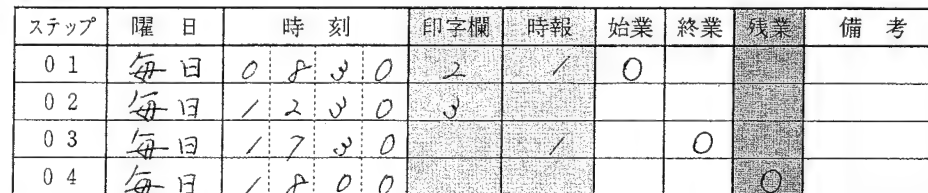 ステップ 曜日 時刻 印字欄 時報 始業 終業 残業 備考
01 毎日 0830 2 1 〇
02 毎日 1230 3
03 毎日 1730 1 〇
04 毎日 1800 〇